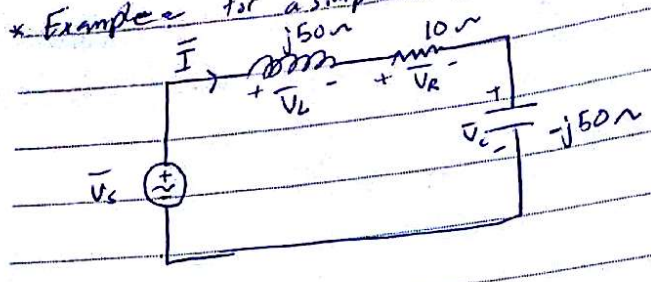 * Example: for a simp
j50 ~ 10 ~
Ī
+ V̄L - + V̄R -
+
V̄c -j50 ~
-
V̄s + ~ -